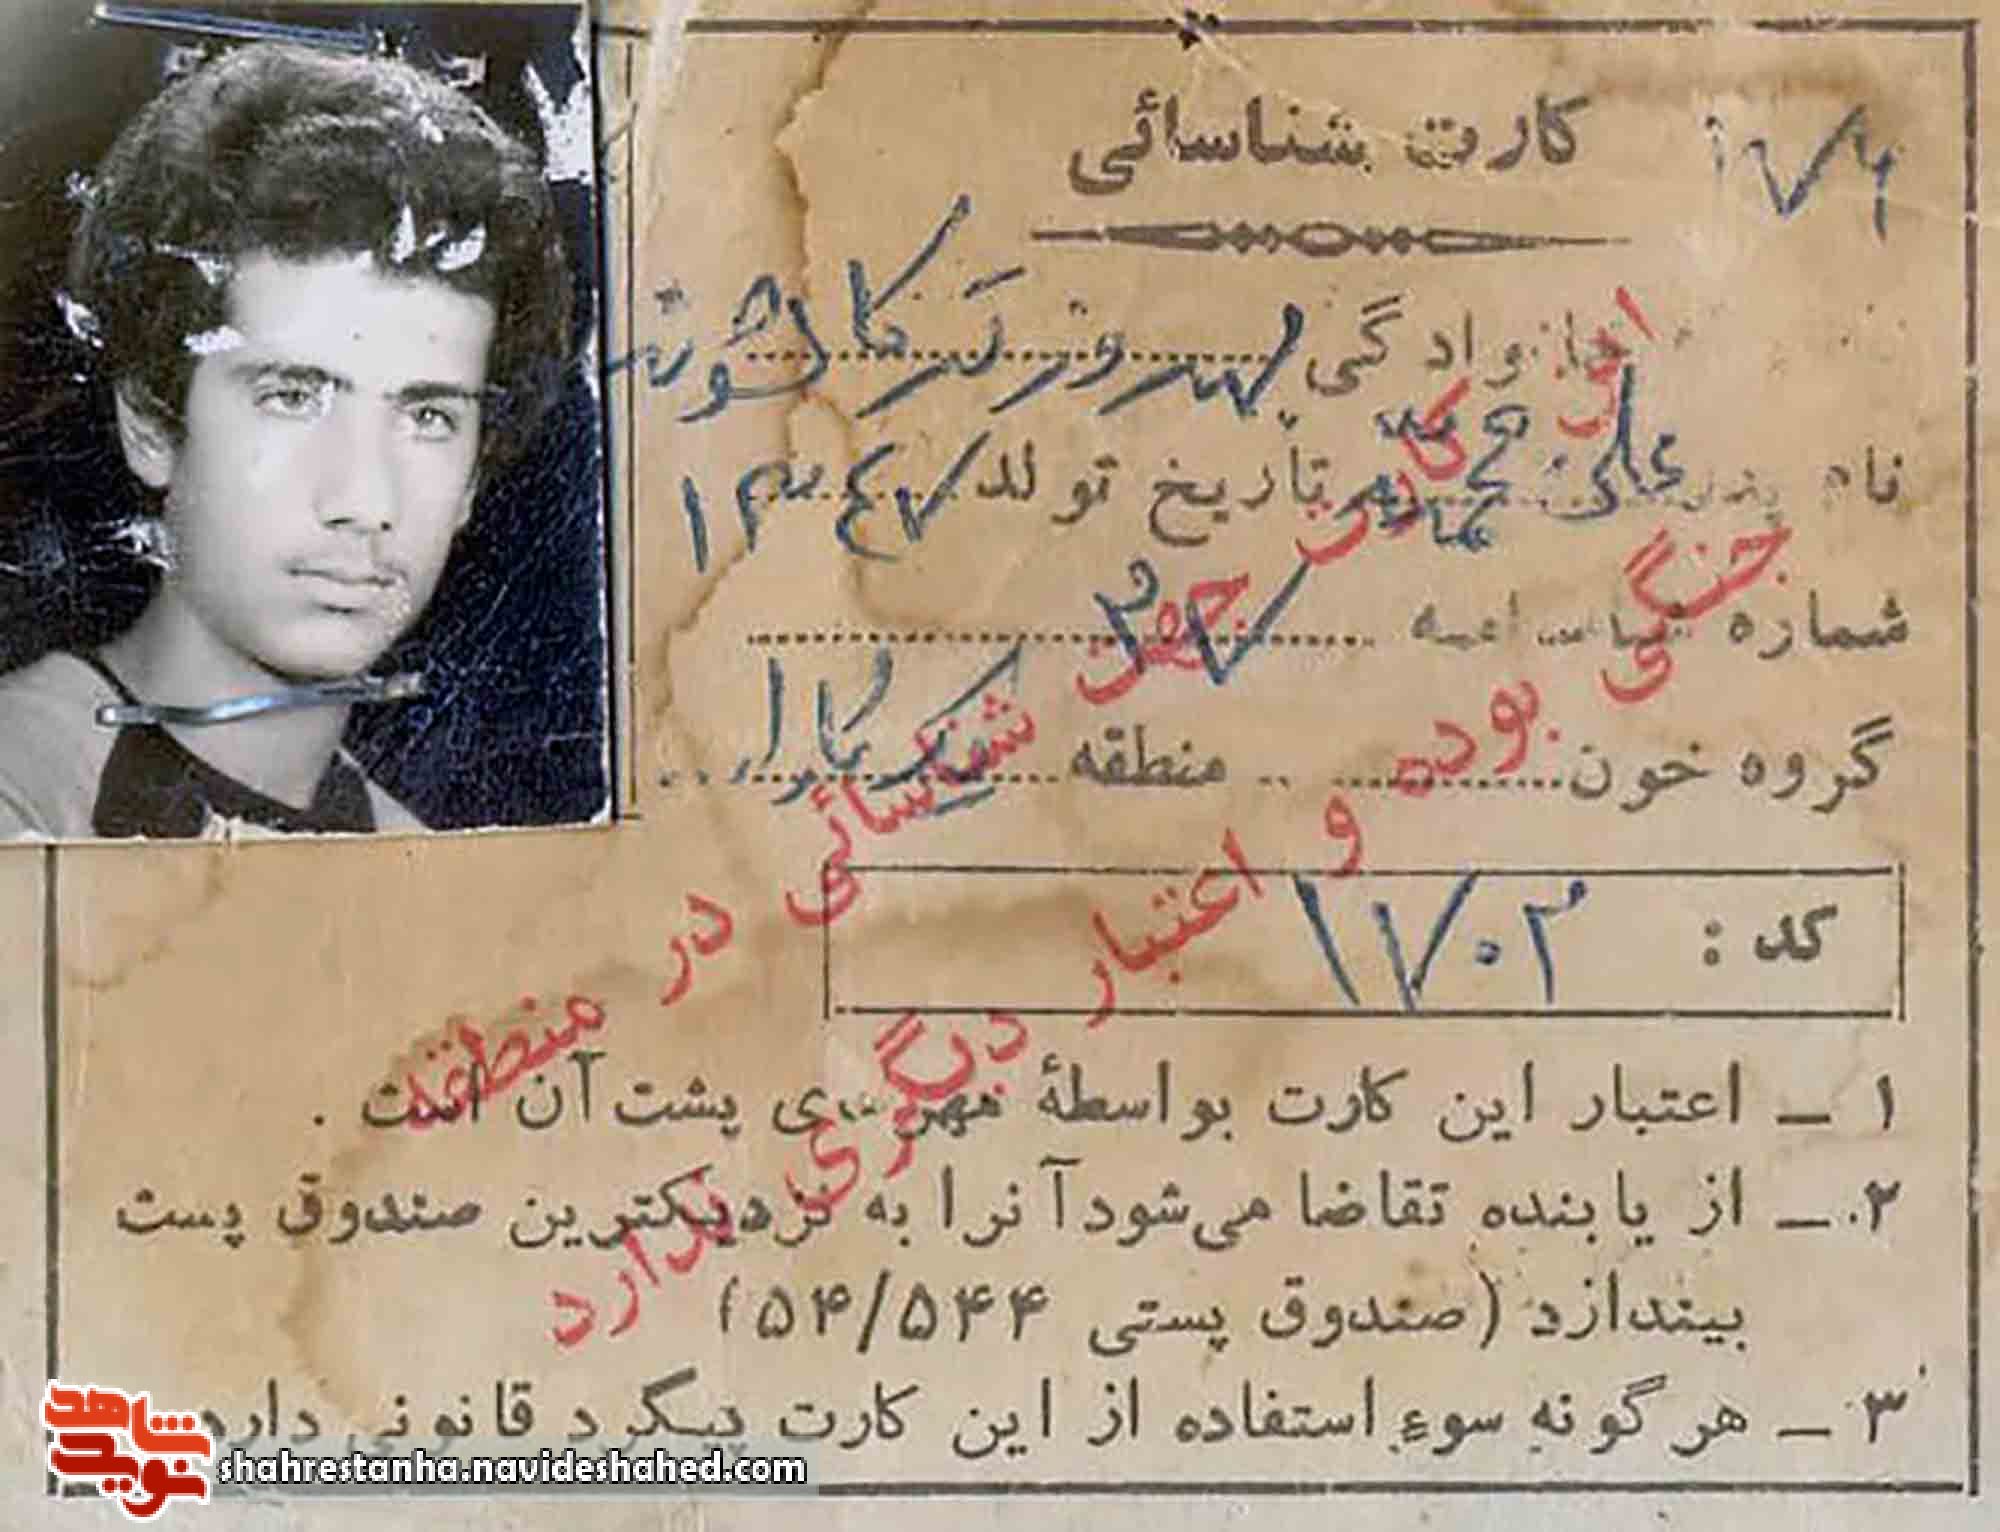 کارت شناسائی
۱۷۶
خانوادگی بهروز ترکاشوند
نام علی محمد تاریخ تولد ۱۳۴۷
شماره شناسنامه ۲۷
گروه خون منطقه
کد : ۱۷۰۳
۱ ـ اعتبار این کارت بواسطهٔ مهر پشت آن است .
۲ ـ از یابنده تقاضا می‌شود آنرا به نزدیکترین صندوق پست
بیندازد (صندوق پستی ۵۴/۵۴۴)
۳ ـ هر گونه سوء استفاده از این کارت پیگرد قانونی دارد
این کارت جهت شناسائی در منطقه
جنگی بوده و اعتبار دیگری ندارد
نوید شاهد
shahrestanha.navideshahed.com